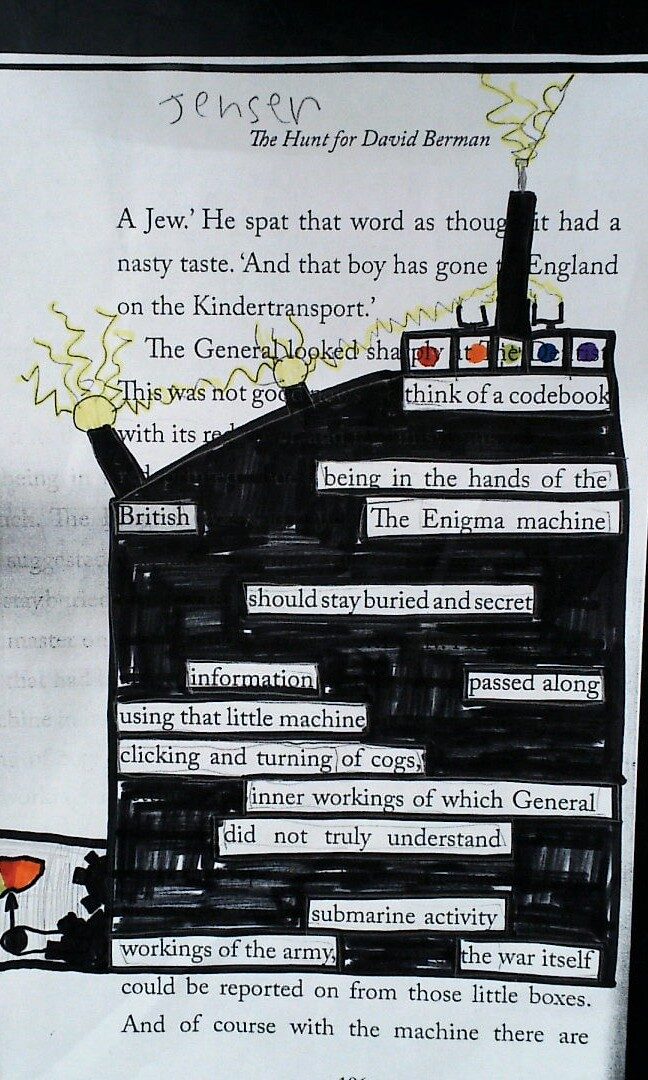 Jensen
The Hunt for David Berman
A Jew.' He spat that word as though it had a
nasty taste. 'And that boy has gone England
on the Kindertransport.'
The General looked sharply at The
This was not good
think of a codebook
with its
being in the hands of the
British The Enigma machine
should stay buried and secret
information passed along
using that little machine
clicking and turning of cogs,
inner workings of which General
did not truly understand
submarine activity
workings of the army, the war itself
could be reported on from those little boxes.
And of course with the machine there are